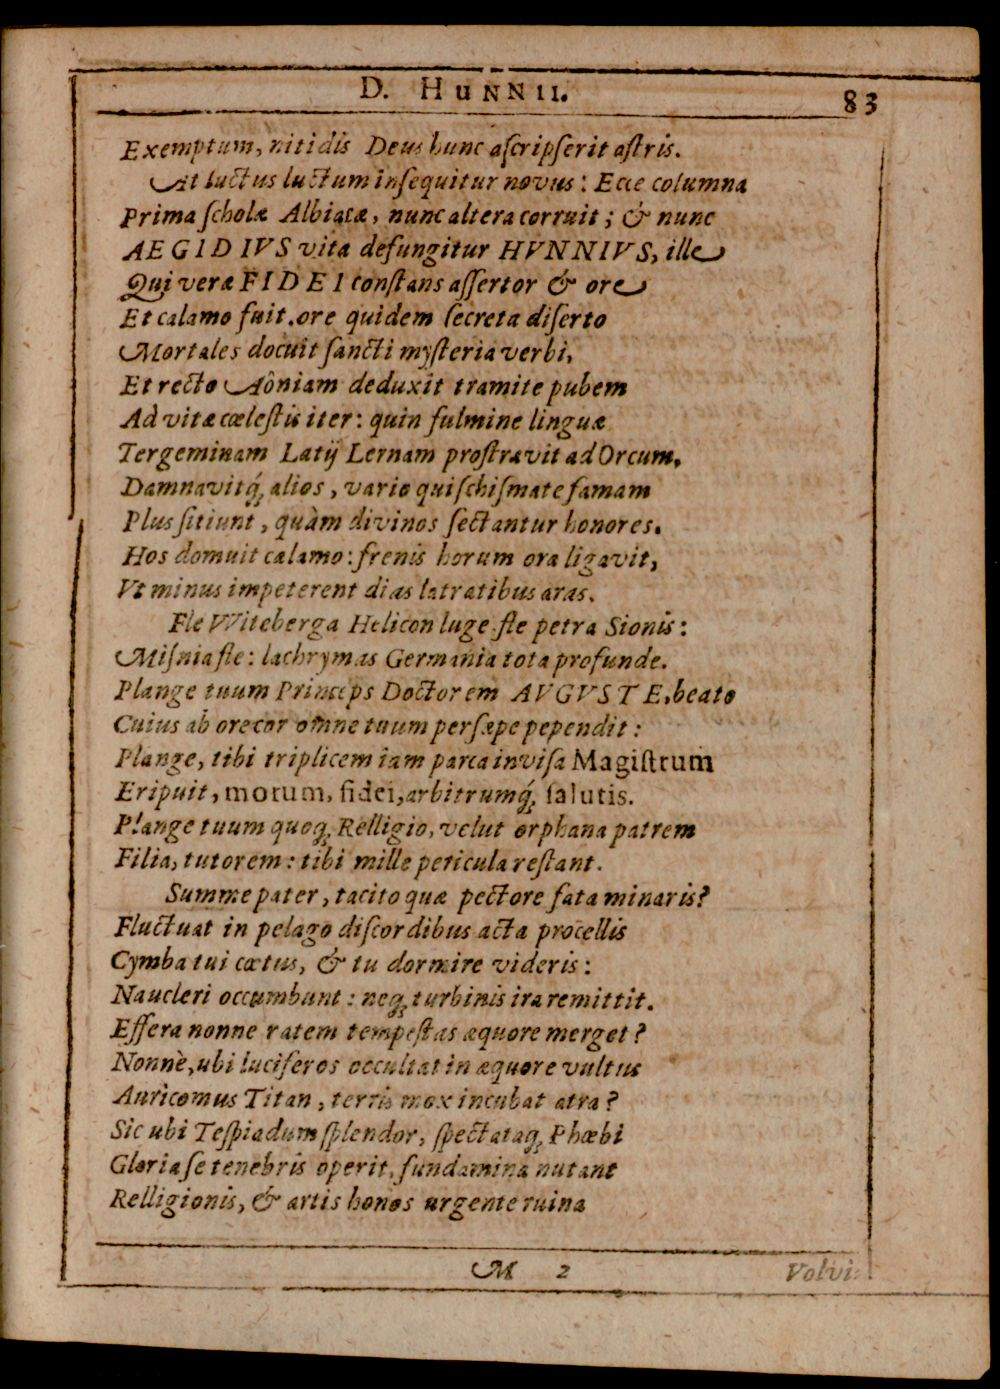 D. HUNNII.
83
Exemptum, nitidis Deus hunc aſcripſerit aſtris.
At luctus luctum inſequitur novus: Ecce columna
Prima ſcholæ Albiacæ, nunc altera corruit; & nunc
AEGIDIVS vita defungitur HVNNIVS, ille
Qui veræ FIDEI conſtans aſſertor & ore
Et calamo fuit. ore quidem ſecreta diſerto
Mortales docuit ſancti myſteria verbi,
Et recto Aôniam deduxit tramite pubem
Ad vitæ cœleſtis iter: quin fulmine linguæ
Tergeminam Latij Lernam proſtravit ad Orcum,
Damnavitq́; alios, vario qui ſchiſmate famam
Plus ſitiunt, quàm divinos ſectantur honores.
Hos domuit calamo: frenis horum ora ligavit,
Vt minus impeterent dias latratibus aras.
Fle VViteberga Helicon luge fle petra Sionis:
Miſnia fle: lachrymas Germania tota profunde.
Plange tuum Princeps Doctorem AVGVSTE, beato
Cuius ab ore cor omne tuum perſæpe pependit:
Plange, tibi triplicem iam parca inviſa Magiſtrum
Eripuit, morum, fidei, arbitrumq́; ſalutis.
Plange tuum quoq; Relligio, velut orphana patrem
Filia, tutorem: tibi mille pericula reſtant.
Summe pater, tacito quæ pectore fata minaris?
Fluctuat in pelago diſcordibus acta procellis
Cymba tui cœtus, & tu dormire videris:
Naucleri occumbunt: neq; turbinis ira remittit.
Effera nonne ratem tempeſtas æquore merget?
Nonnè, ubi luciferos occultat in æquore vultus
Auricomus Titan, terris mox incubat atra?
Sic ubi Teſpiadum ſplendor, ſpectataq; Phœbi
Gloria ſe tenebris operit, fundamina nutant
Relligionis, & artis honos urgente ruina
M 2
Volvi